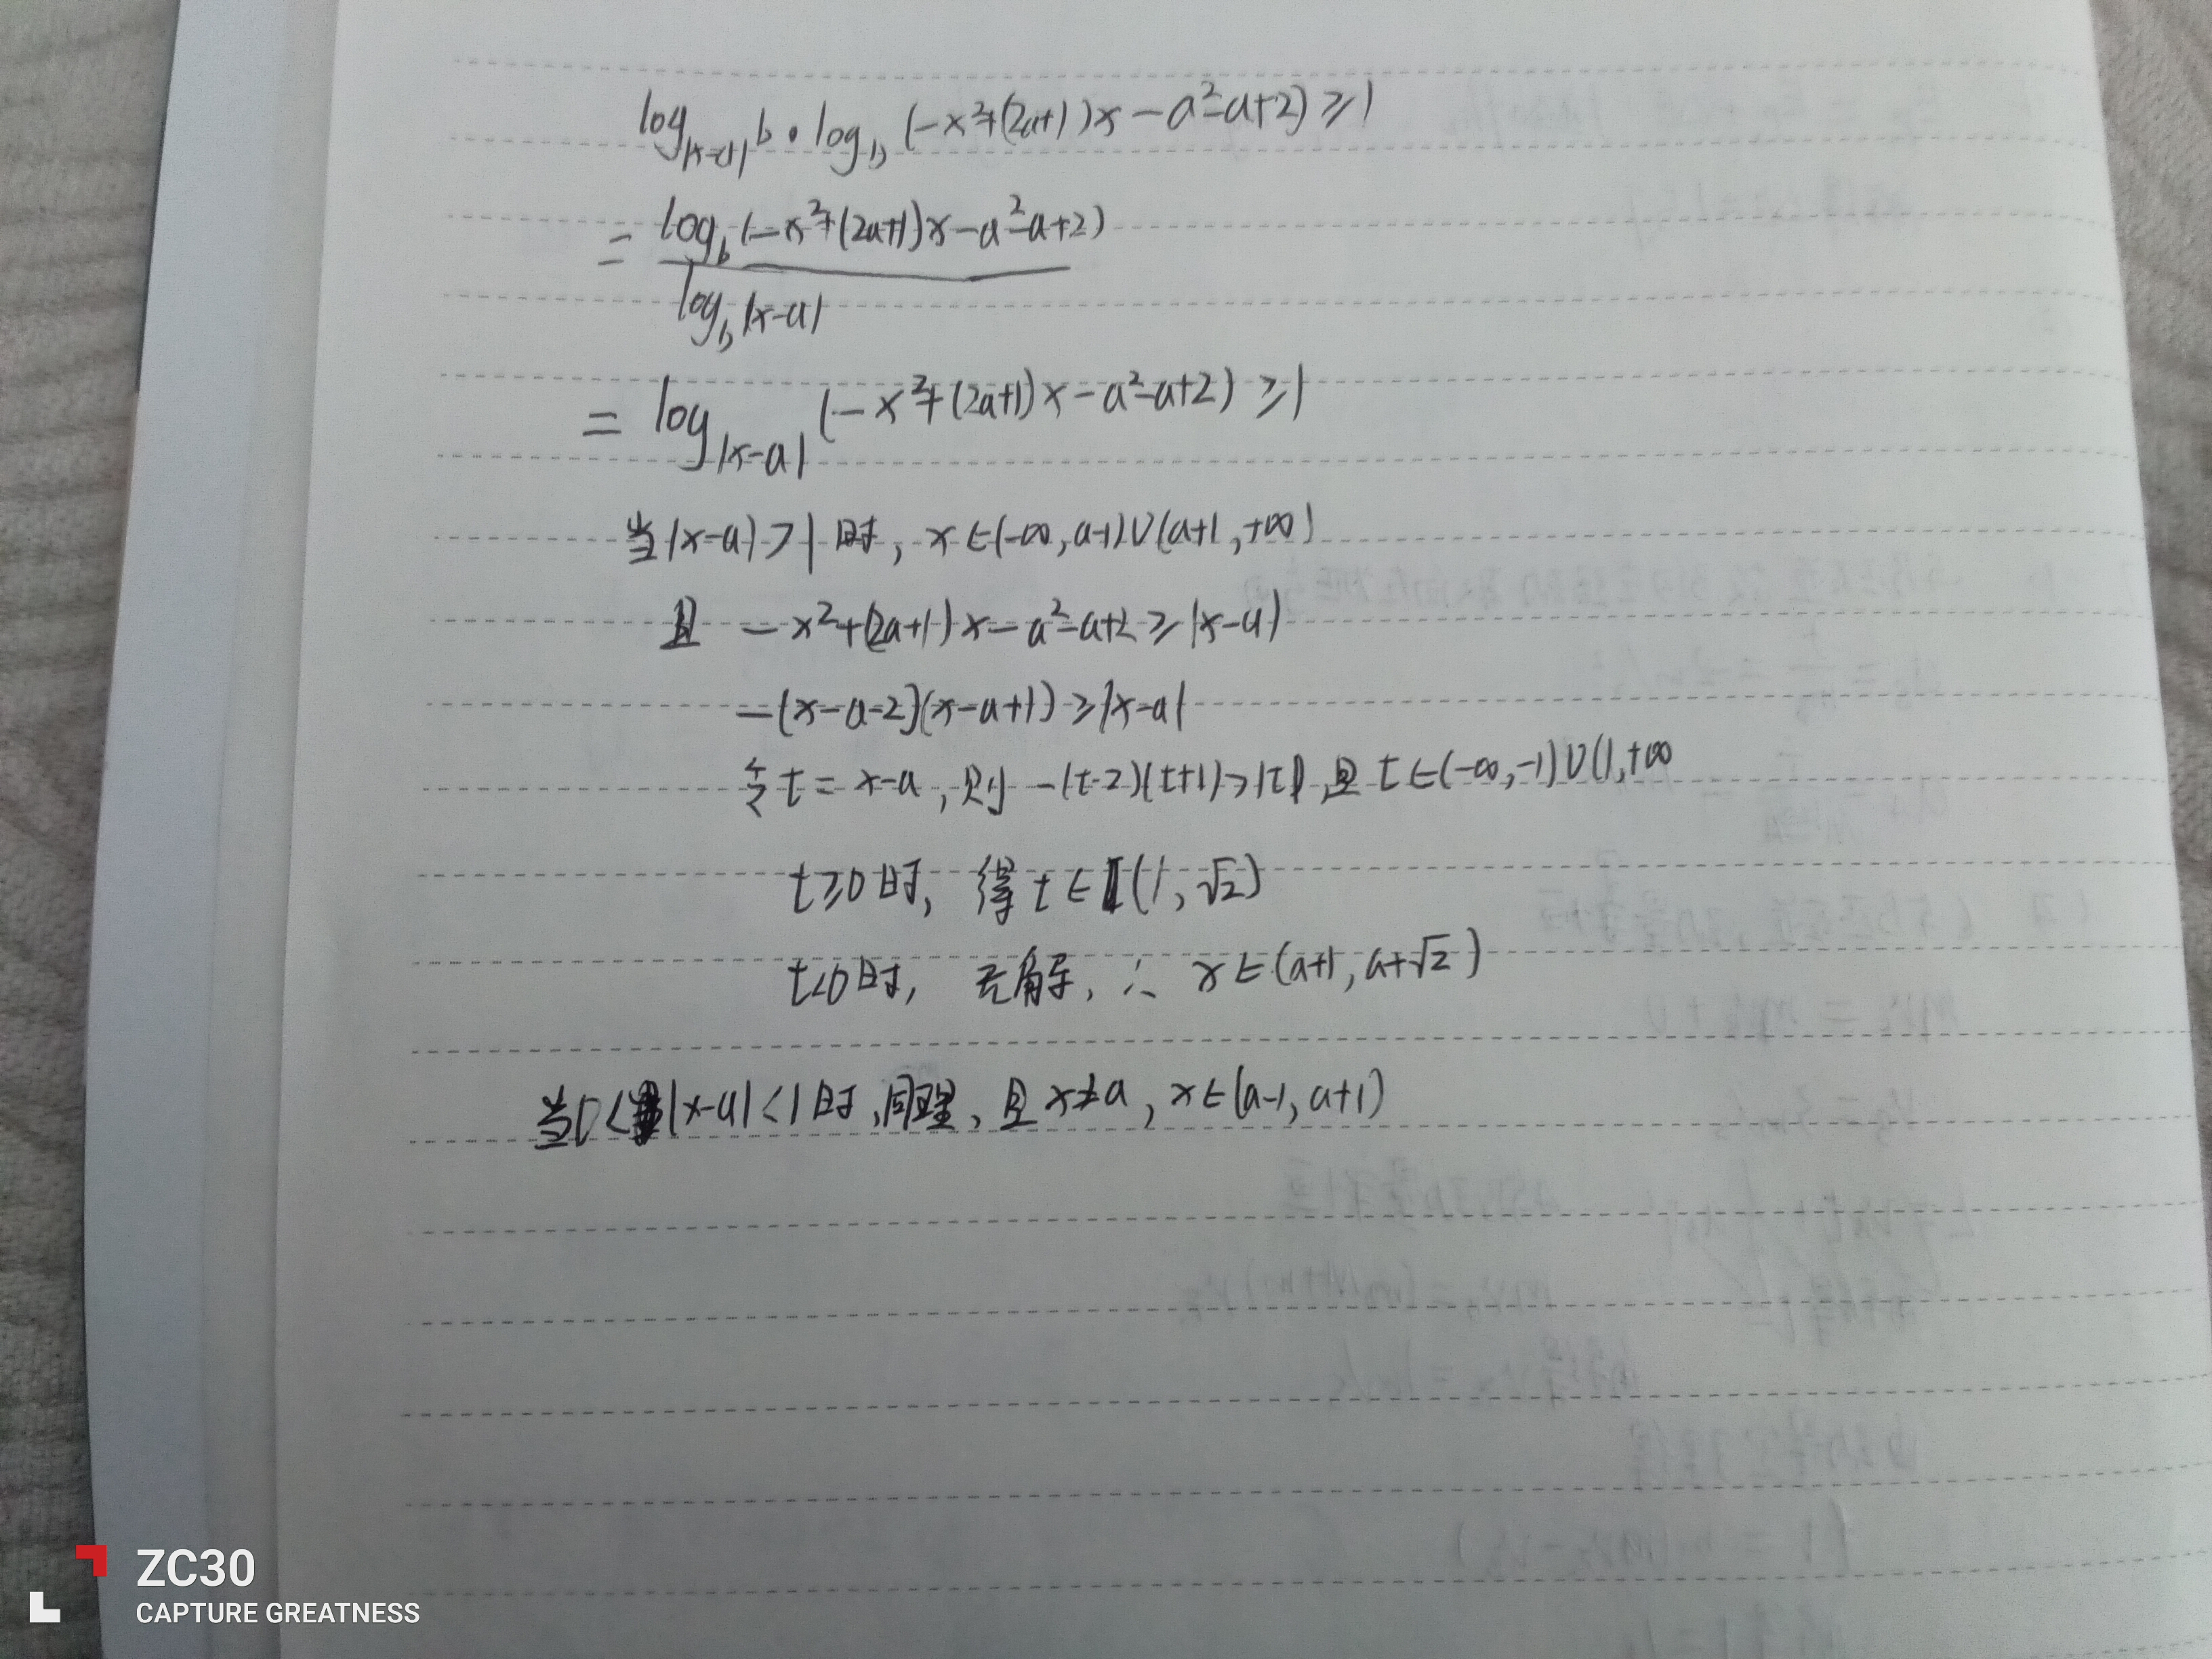 log_{|x-a|} b · log_b (-x²+(2a+1)x-a²-a+2) ≥ 1
= \frac{log_b (-x²+(2a+1)x-a²-a+2)}{log_b |x-a|}
= log_{|x-a|} (-x²+(2a+1)x-a²-a+2) ≥ 1
当|x-a|>1时, x∈(-∞,a-1)∪(a+1,+∞)
且 -x²+(2a+1)x-a²-a+2≥|x-a|
-(x-a-2)(x-a+1)≥|x-a|
令t=x-a,则-(t-2)(t+1)>|t|,且t∈(-∞,-1)∪(1,+∞
t≥0时, 得t∈(1,√2)
t<0时, 无解, ∴ x∈(a+1,a+√2)
当0<|x-a|<1时,同理,且x≠a, x∈(a-1,a+1)
ZC30
CAPTURE GREATNESS